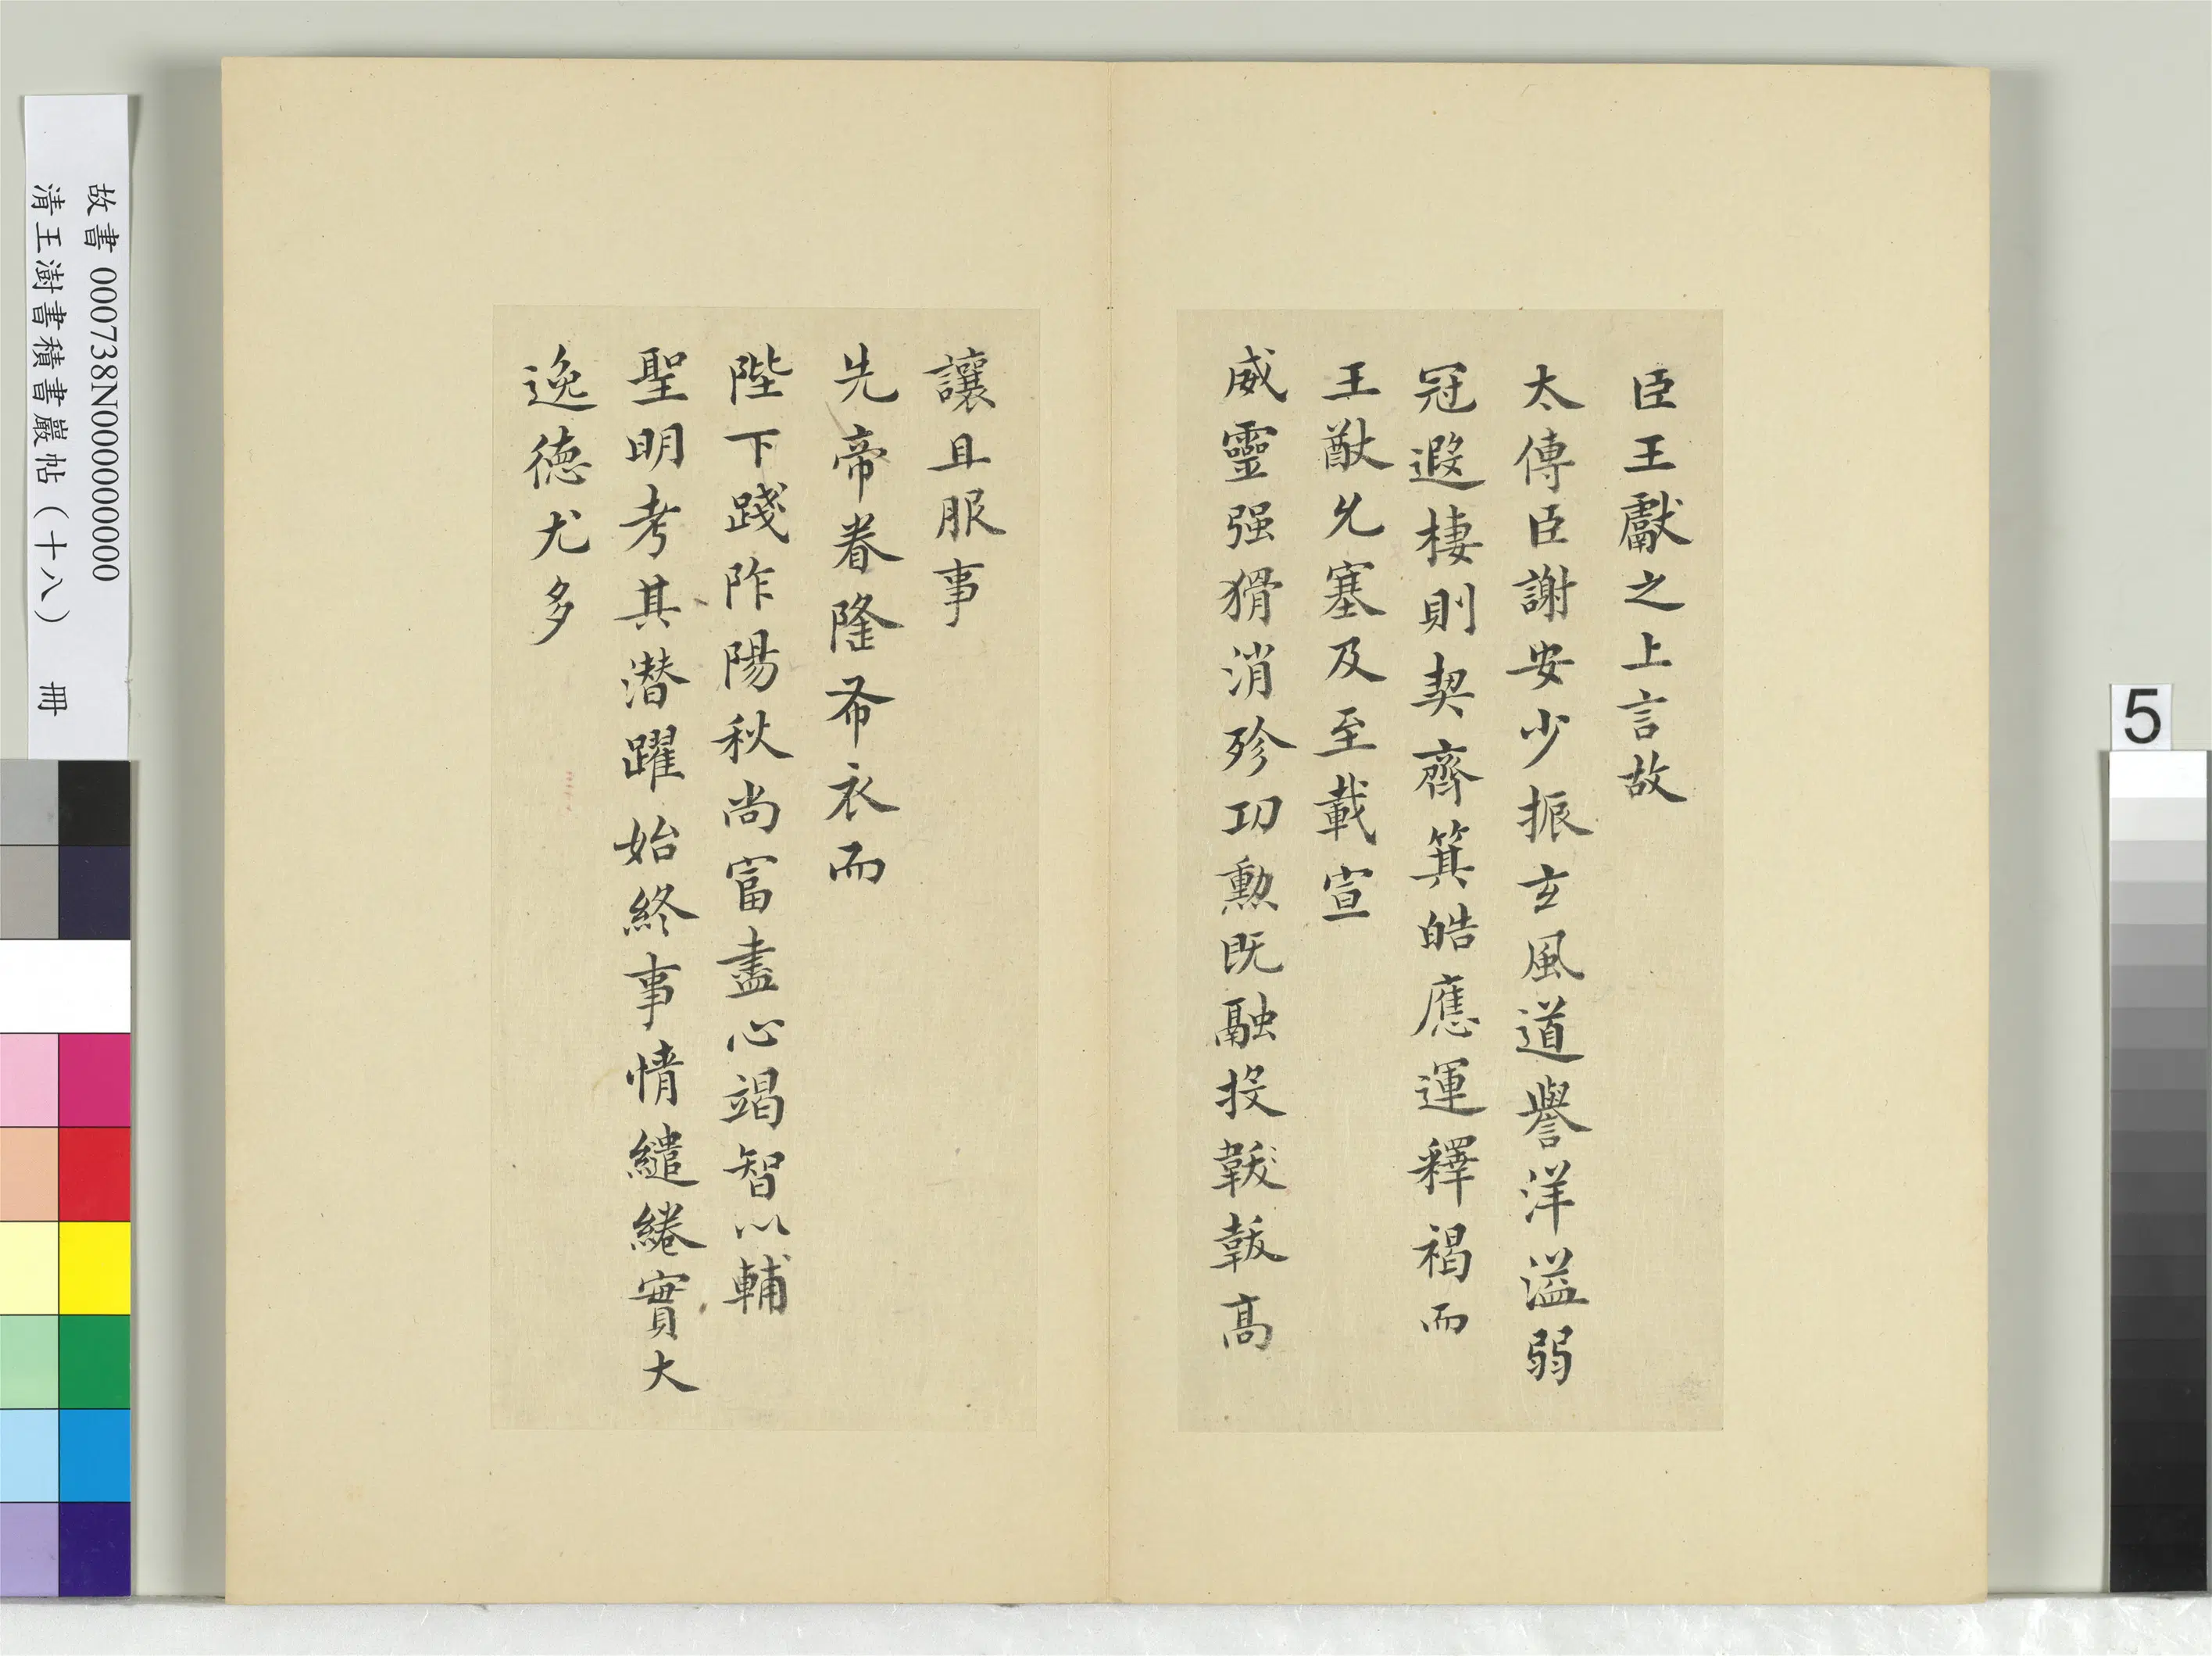 臣王獻之上言故
太傅臣謝安少振玄風道譽洋溢弱
冠遐棲則契齊箕皓應運釋褐而
王猷允塞及至載宣
威靈强猾消殄功勲既融投韍韍高
讓且服事
先帝眷隆布衣而
陛下踐阼陽秋尚富盡心竭智以輔
聖明考其潛躍始終事情繾綣實大
逸德尤多
故書 000738N000000000
清王澍書積書巖帖（十八） 冊
5